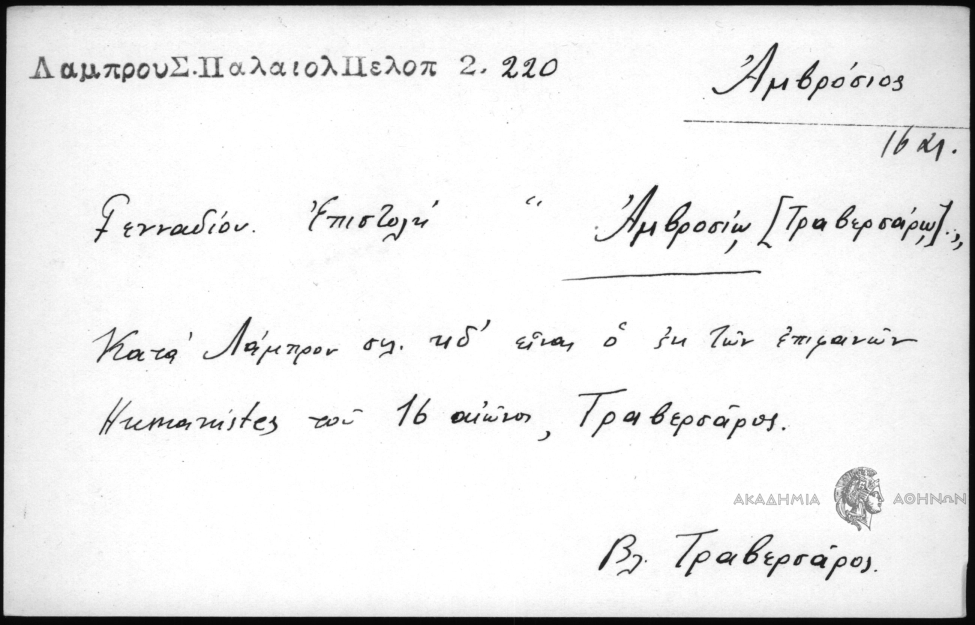 ΛαμπρουΣ.ΠαλαιολΠελοπ 2. 220
Ἀμβρόσιος
16 αι.
Γενναδίου. Ἐπιστολή “ Ἀμβροσίῳ [Τραβερσάρῳ]..„
Κατά Λάμπρον σελ. κδ' εἶναι ὁ ἐκ τῶν ἐπιφανῶν
Humanistes τοῦ 16 αἰῶνος, Τραβερσάρος.
ΑΚΑΔΗΜΙΑ ΑΘΗΝΩΝ
Βλ. Τραβερσάρος.